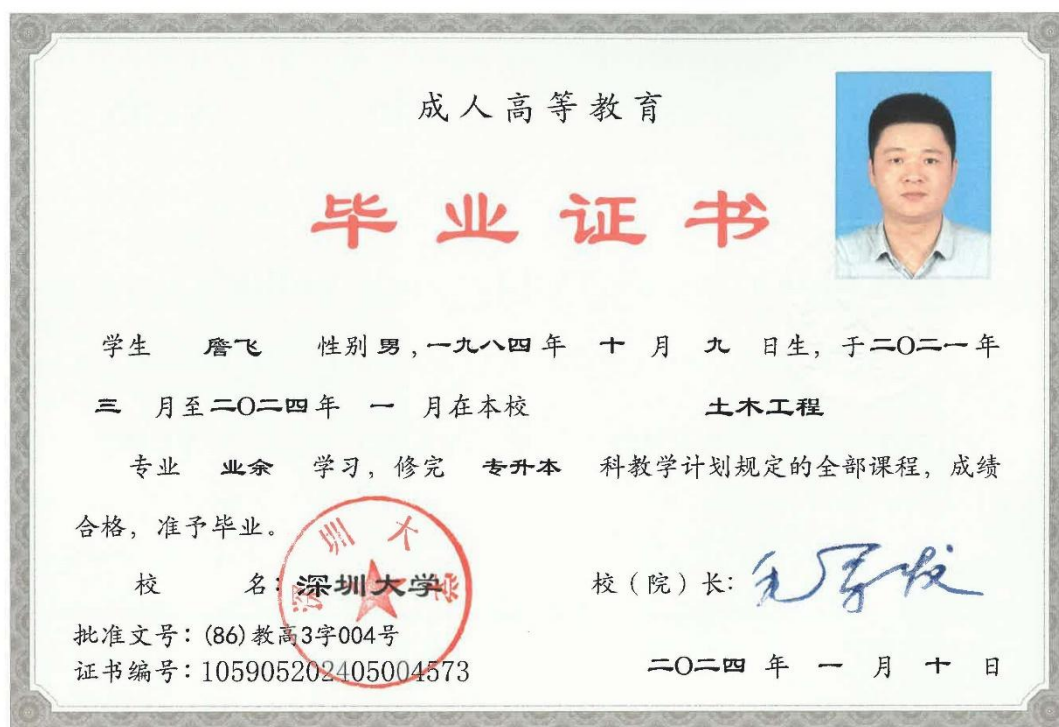 成人高等教育
毕业证书
学生 詹飞 性别 男,一九八四年 十 月 九 日生,于二〇二一年
三 月至二〇二四年 一 月在本校 土木工程
专业 业余 学习,修完 专升本 科教学计划规定的全部课程,成绩
合格,准予毕业。
校 名:深圳大学
深圳大学
校(院)长:毛军发
批准文号:(86)教高3字004号
证书编号:105905202405004573
二〇二四 年 一 月 十 日